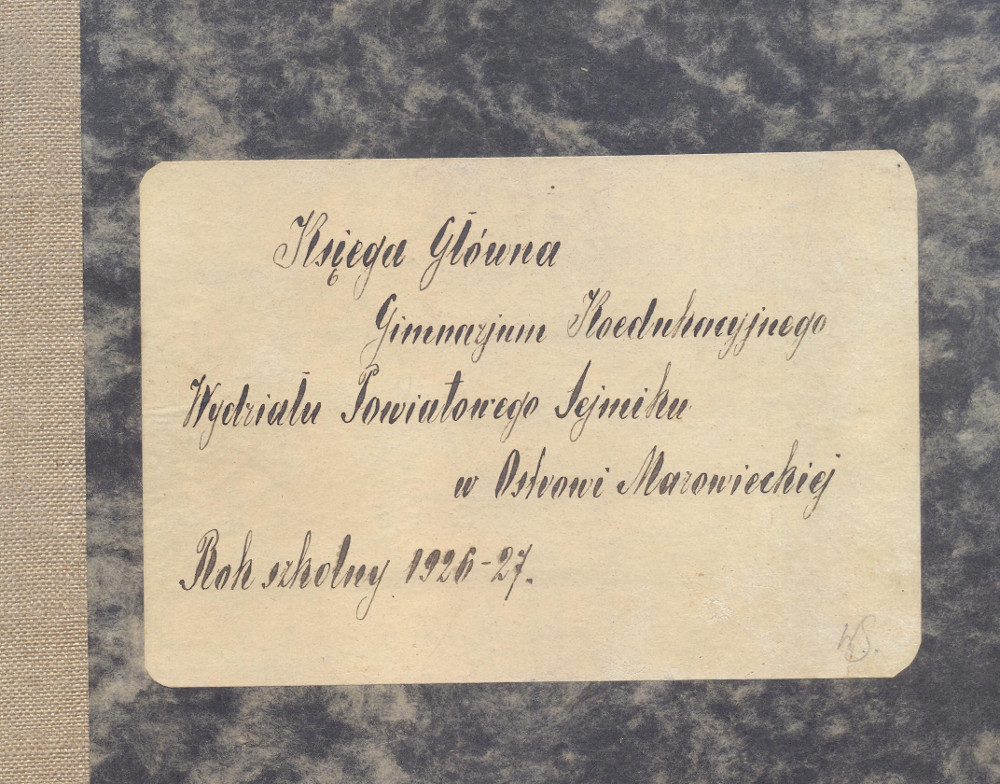 Księga Główna
Gimnazjum Koedukacyjnego
Wydziału Powiatowego Sejmiku
w Ostrowi Mazowieckiej
Rok szkolny 1926-27.